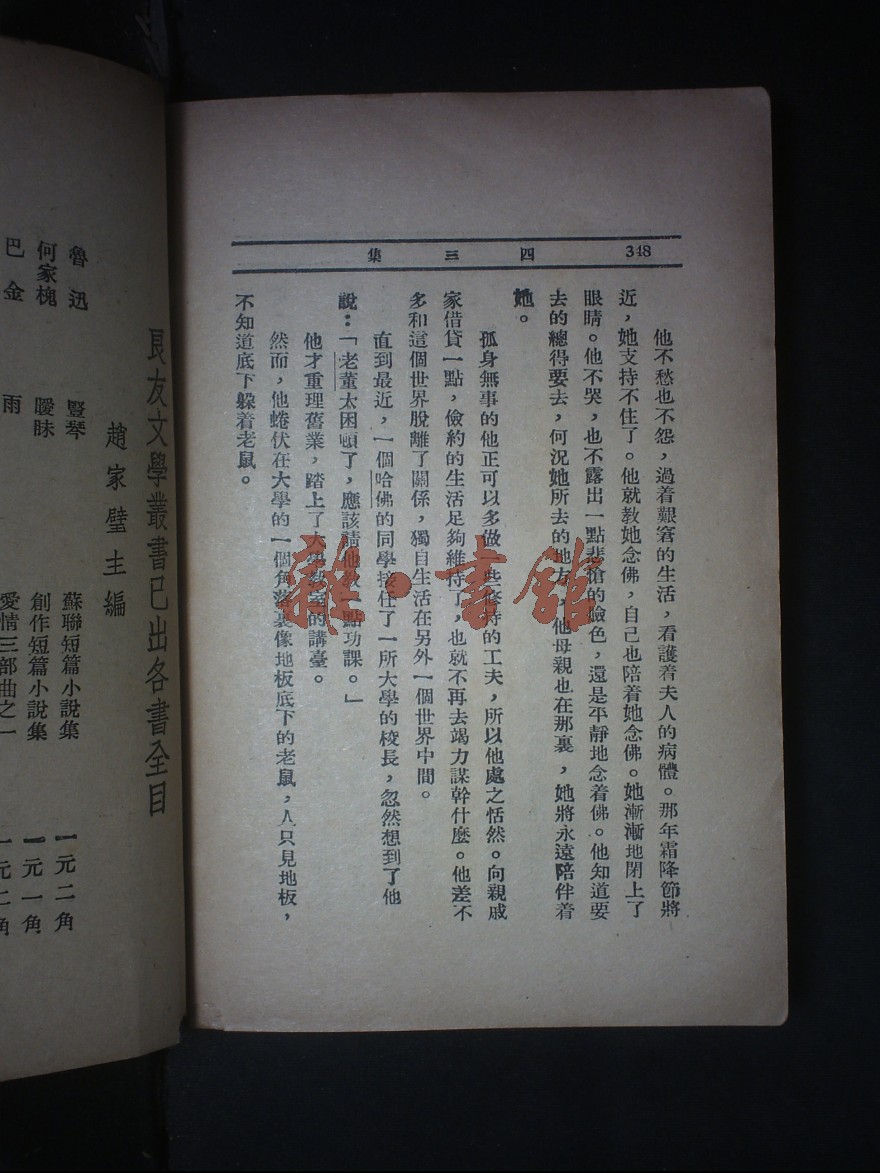 348
四三集
他不愁也不怨，過着艱窘的生活，看護着夫人的病體。那年霜降節將
近，她支持不住了。他就教她念佛，自己也陪着她念佛。她漸漸地閉上了
眼睛。他不哭，也不露出一點悲愴的臉色，還是平靜地念着佛。他知道要
去的總得要去，何況她所去的地方，他母親也在那裏，她將永遠陪伴着
她。
孤身無事的他正可以多做一些修持的工夫，所以他處之恬然。向親戚
家借貸一點，儉約的生活足夠維持了，也就不再去竭力謀幹什麼。他差不
多和這個世界脫離了關係，獨自生活在另外一個世界中間。
直到最近，一個哈佛的同學接任了一所大學的校長，忽然想到了他
說：「老董太困頓了，應該請他教一點功課。」
他才重理舊業，踏上了大學教室的講臺。
然而，他蜷伏在大學的一個角落裏像地板底下的老鼠，人只見地板，
不知道底下躲着老鼠。
雜·書館
良友文學叢書已出各書全目
趙家璧主編
魯迅 豎琴 蘇聯短篇小說集 一元二角
何家槐 曖昧 創作短篇小說集 一元一角
巴金 雨 愛情三部曲之一 一元二角